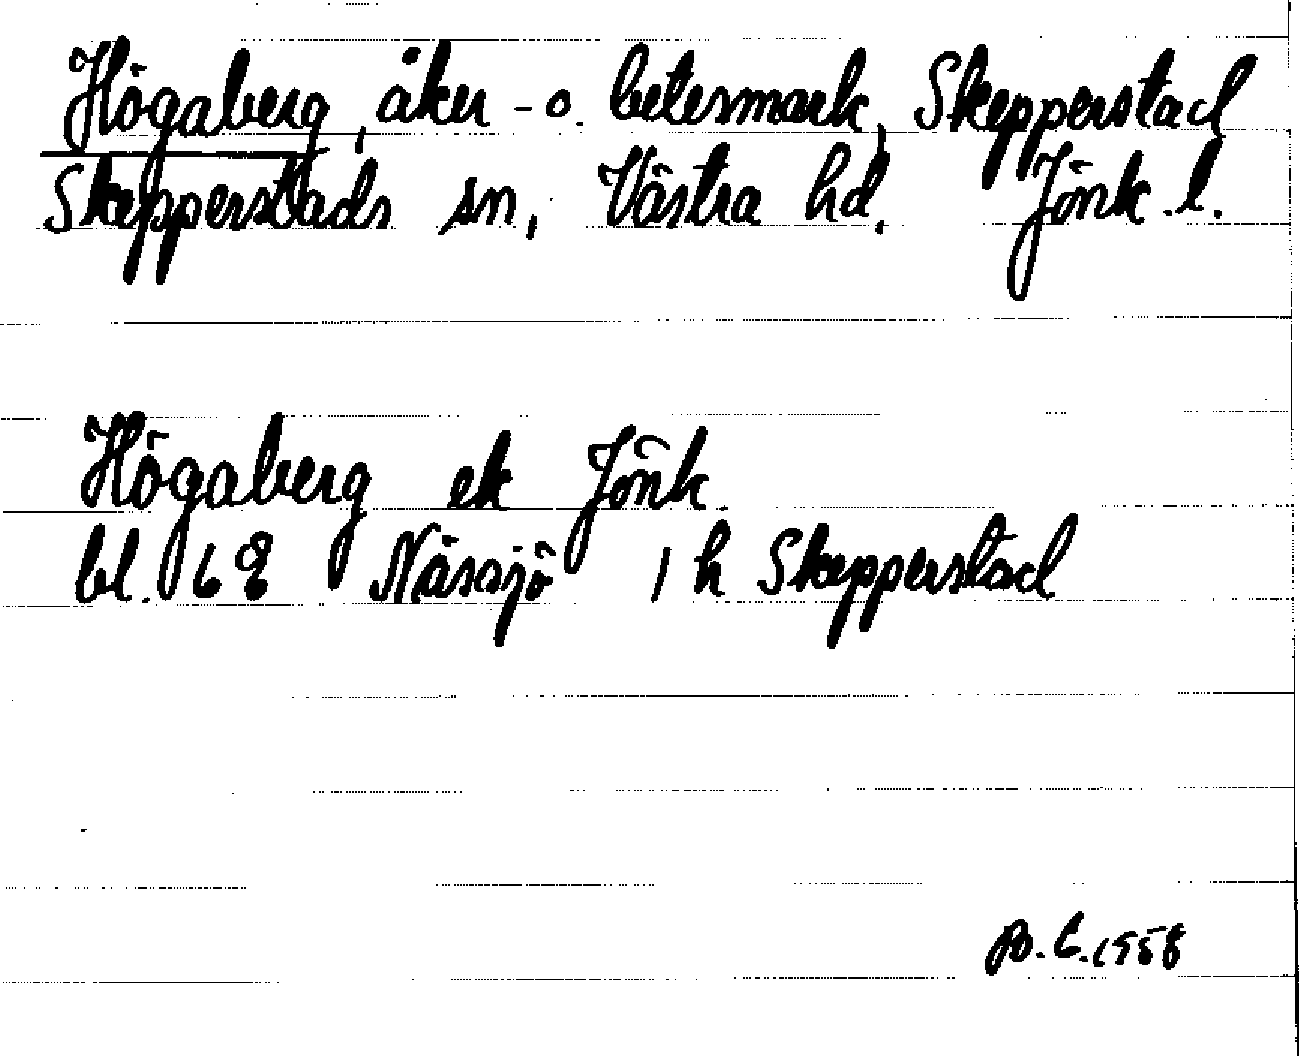 Högaberg, åker - o. betesmark, Skepperstad
Skepperstads sn, Västra hd. Jönk. l.
Högaberg ek Jönk.
bl. 68 Nässjö 1 h Skepperstad
B.L. 1958